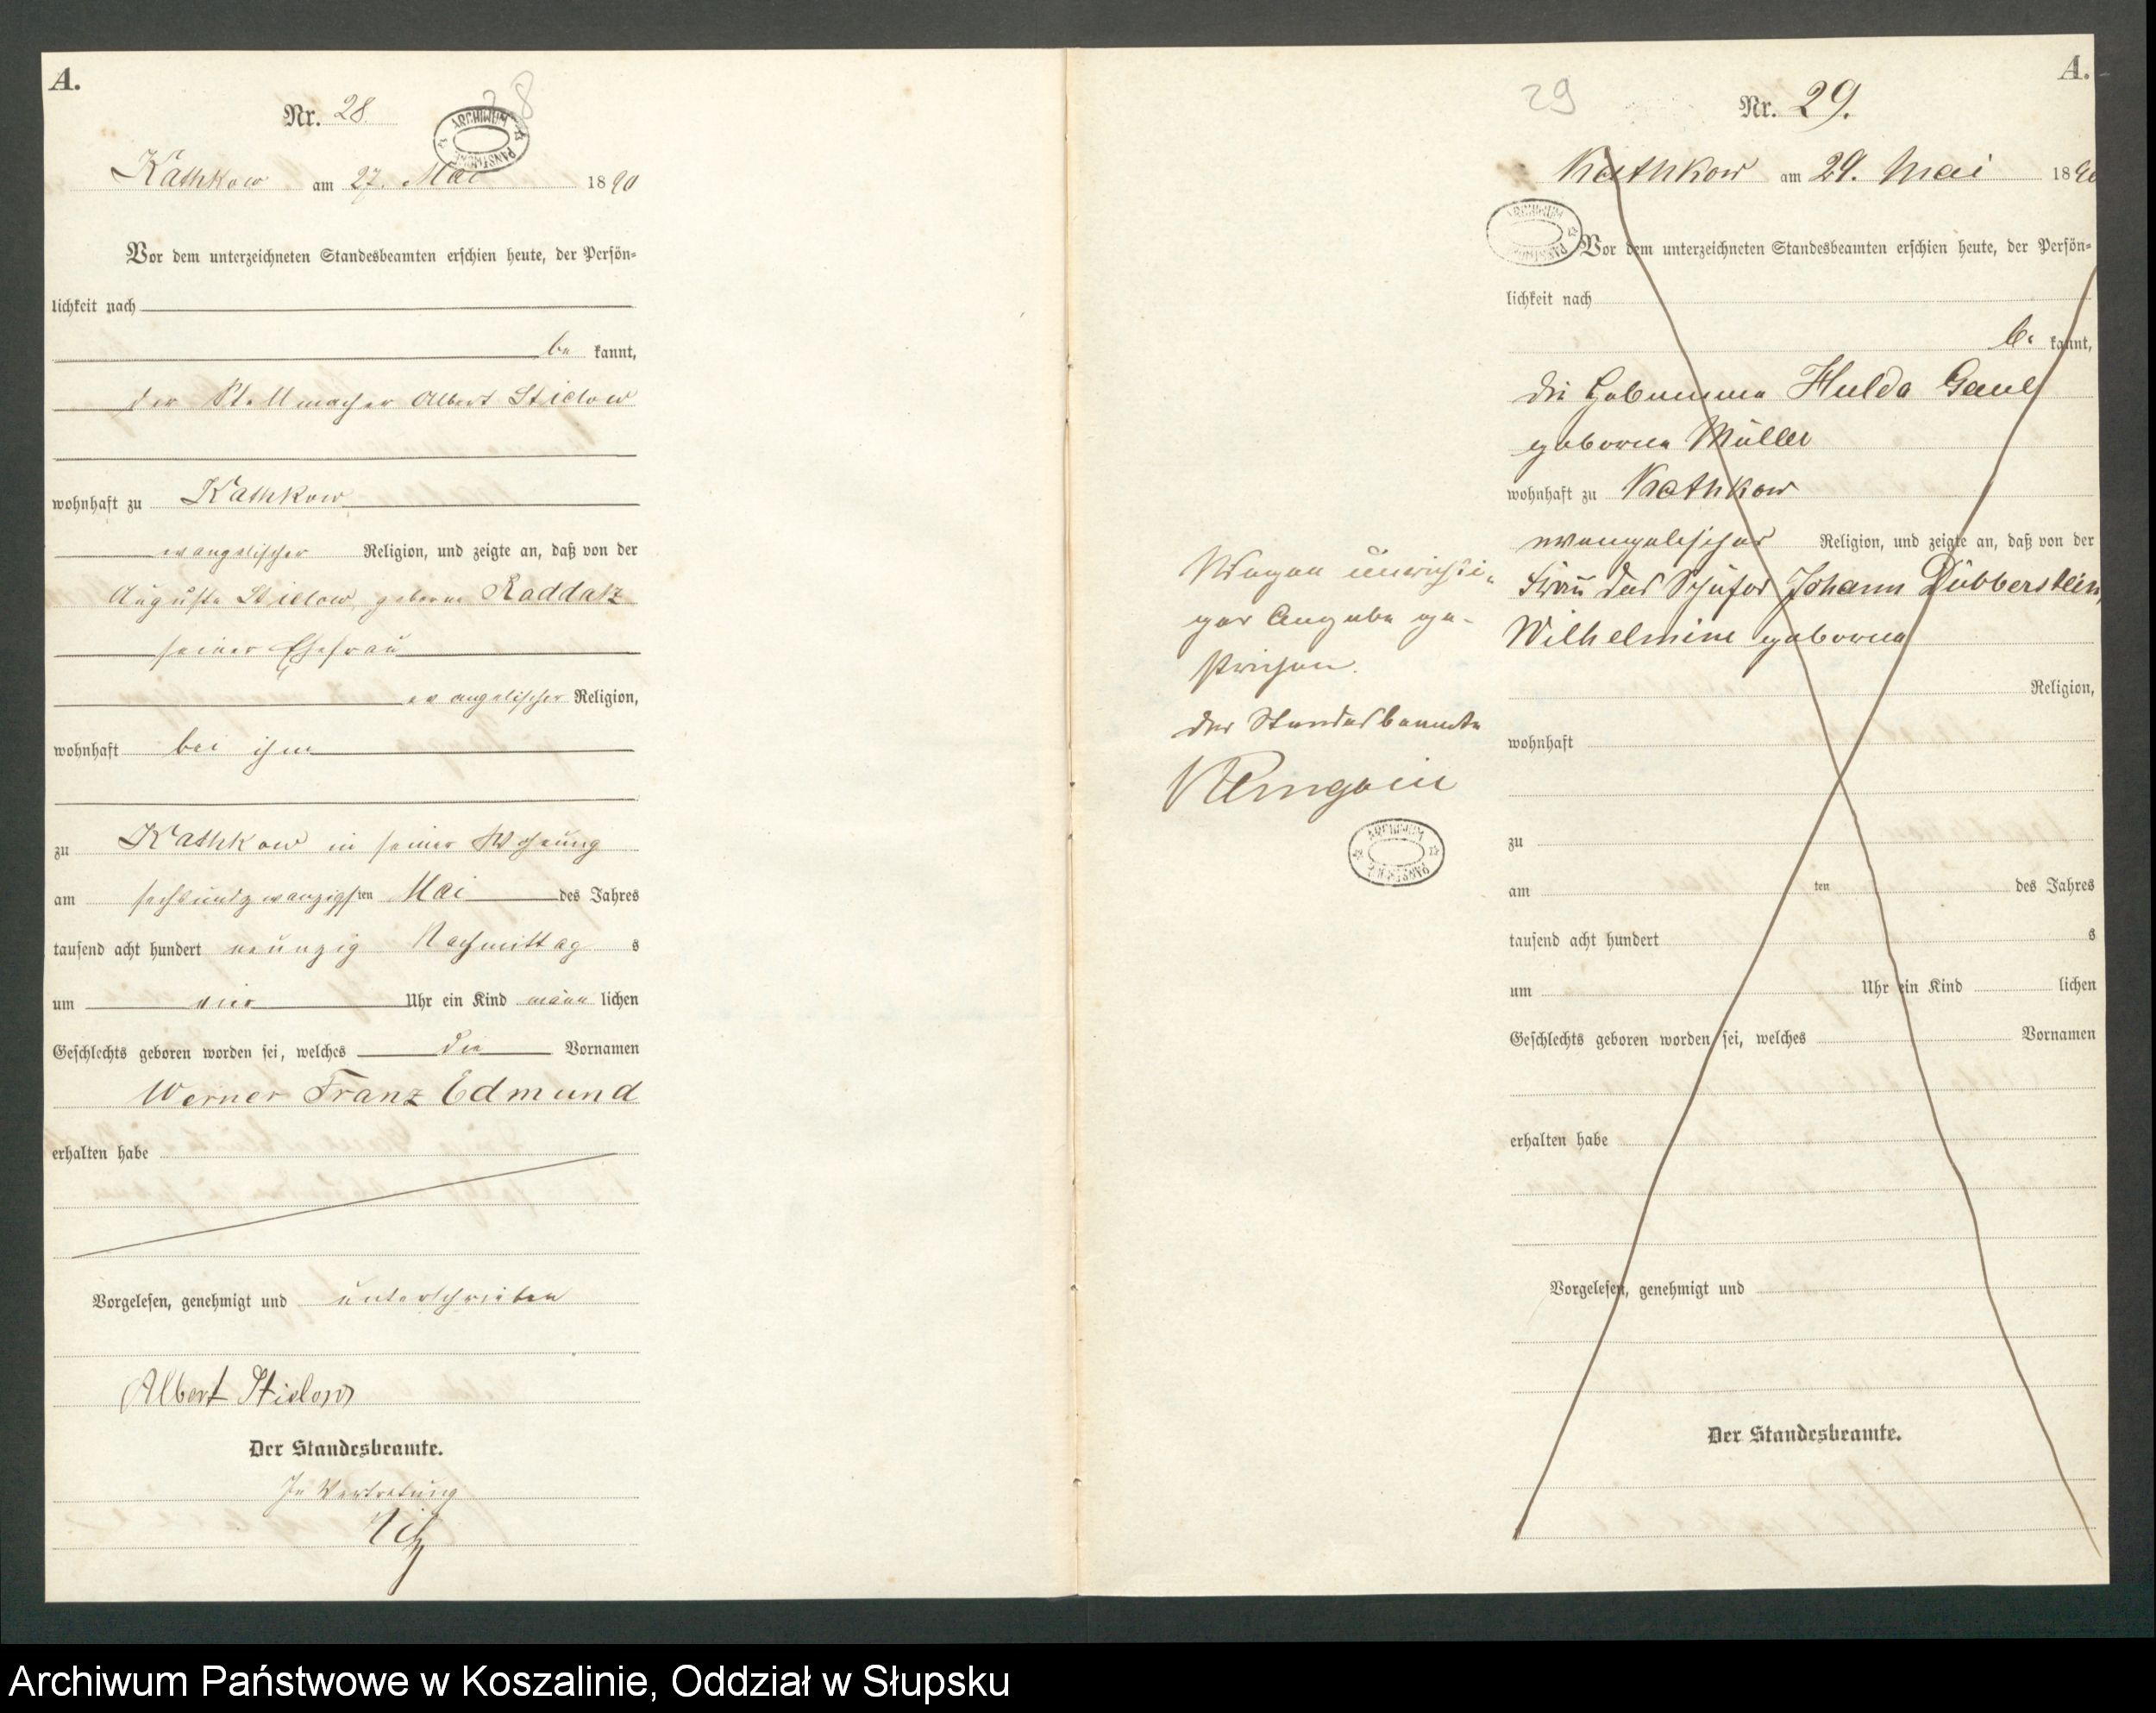 A.
Nr. 28.
28
ARCHIWUM PAŃSTWOWE
Kathkow am 27. Mai 1890
Vor dem unterzeichneten Standesbeamten erschien heute, der Persön-
lichkeit nach
be kannt,
der Stellmacher Albert Stielow
wohnhaft zu Kathkow
evangelischer Religion, und zeigte an, daß von der
Auguste Stielow, geborne Raddatz
seiner Ehefrau
evangelischer Religion,
wohnhaft bei ihm
zu Kathkow in seiner Wohnung
am sechsundzwanzigsten Mai des Jahres
tausend acht hundert neunzig Nachmittag s
um vier Uhr ein Kind männ lichen
Geschlechts geboren worden sei, welches die Vornamen
Werner Franz Edmund
erhalten habe
Vorgelesen, genehmigt und unterschrieben
Albert Stielow
Der Standesbeamte.
In Vertretung
A.
29
Nr. 29.
Kathkow am 29. Mai 1890
ARCHIWUM PAŃSTWOWE
Vor dem unterzeichneten Standesbeamten erschien heute, der Persön-
lichkeit nach
be kannt,
die Hebamme Hulda Gaul
geborne Müller
wohnhaft zu Kathkow
evangelischer Religion, und zeigte an, daß von der
Frau des Schäfer Johann Dübberstein,
Wilhelmine geborne
Religion,
wohnhaft
zu
am ten des Jahres
tausend acht hundert s
um Uhr ein Kind lichen
Geschlechts geboren worden sei, welches Vornamen
erhalten habe
Vorgelesen, genehmigt und
Der Standesbeamte.
Wegen unrichti-
ger Angabe ge-
strichen.
der Standesbeamte
ARCHIWUM PAŃSTWOWE
Archiwum Państwowe w Koszalinie, Oddział w Słupsku